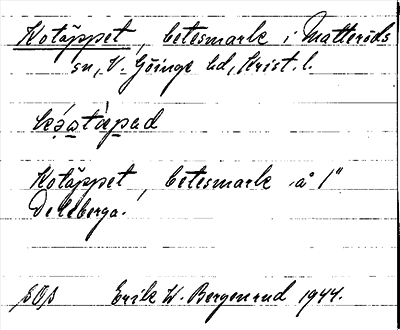 Kotäppet, betesmark i Matteröds
sn, V. Göinge hd, Krist. l.
Kotäppet, betesmark å 1"
Deleberga.
SOS Erik W. Bergenrud 1944.